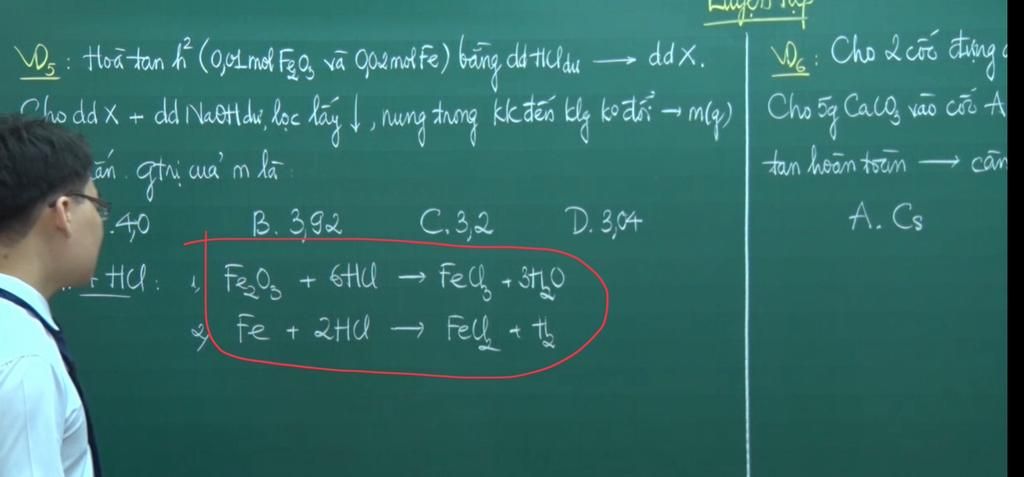 Luyện tập
VD5: Hoà tan h² (0,01mol Fe2O3 và 0,02mol Fe) bằng dd HCl dư → dd X.
Cho dd X + dd NaOH dư, lọc lấy ↓, nung trong kk đến klg ko đổi → m(g)
rắn. gtrị của m là:
.4,0 B. 3,92 C. 3,2 D. 3,04
+ HCl: 1, Fe2O3 + 6HCl → FeCl3 + 3H2O
2, Fe + 2HCl → FeCl2 + H2
VD6: Cho 2 cốc đựng
Cho 5g CaCO3 vào cốc A
tan hoàn toàn → cân
A. Cs